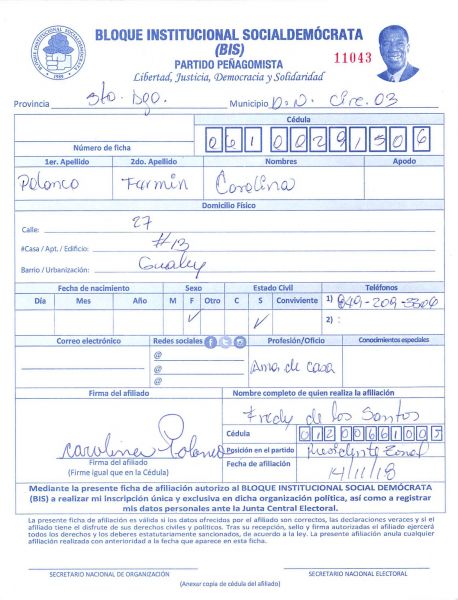 BLOQUE INSTITUCIONAL SOCIALDEMÓCRATA
(BIS)
PARTIDO PEÑAGOMISTA
Libertad, Justicia, Democracia y Solidaridad
11043
Provincia Sto. Dgo. Municipio D.N. Circ. 03
Cédula
Número de ficha
1er. Apellido 2do. Apellido Nombres Apodo
Polanco Fermin Carolina
Domicilio Físico
Calle: 27
#Casa / Apt. / Edificio: #13
Barrio / Urbanización: Gualey
Fecha de nacimiento Sexo Estado Civil Teléfonos
Día Mes Año M F Otro C S Conviviente 1)
2) :
Correo electrónico Redes sociales Profesión/Oficio Conocimientos especiales
@
@
@
Ama de casa
Firma del afiliado Nombre completo de quien realiza la afiliación
Fredy de los Santos
Cédula
01200661005
carolina Polanco
Posición en el partido Presidente Zonal
Firma del afiliado
(Firme igual que en la Cédula)
Fecha de afiliación 14/11/18
Mediante la presente ficha de afiliación autorizo al BLOQUE INSTITUCIONAL SOCIAL DEMÓCRATA
(BIS) a realizar mi inscripción única y exclusiva en dicha organización política, así como a registrar
mis datos personales ante la Junta Central Electoral.
La presente ficha de afiliación es válida si los datos ofrecidos por el afiliado son correctos, las declaraciones veraces y si el
afiliado tiene el disfrute de sus derechos civiles y políticos. Tras su recepción, sello y firma autorizadas el afiliado ejercerá
todos los derechos y los deberes estatutariamente sancionados, de acuerdo a la ley. La presente afiliación anula cualquier
afiliación realizada con anterioridad a la fecha que aparece en esta ficha.
SECRETARIO NACIONAL DE ORGANIZACIÓN SECRETARIO NACIONAL ELECTORAL
(Anexar copia de cédula del afiliado)